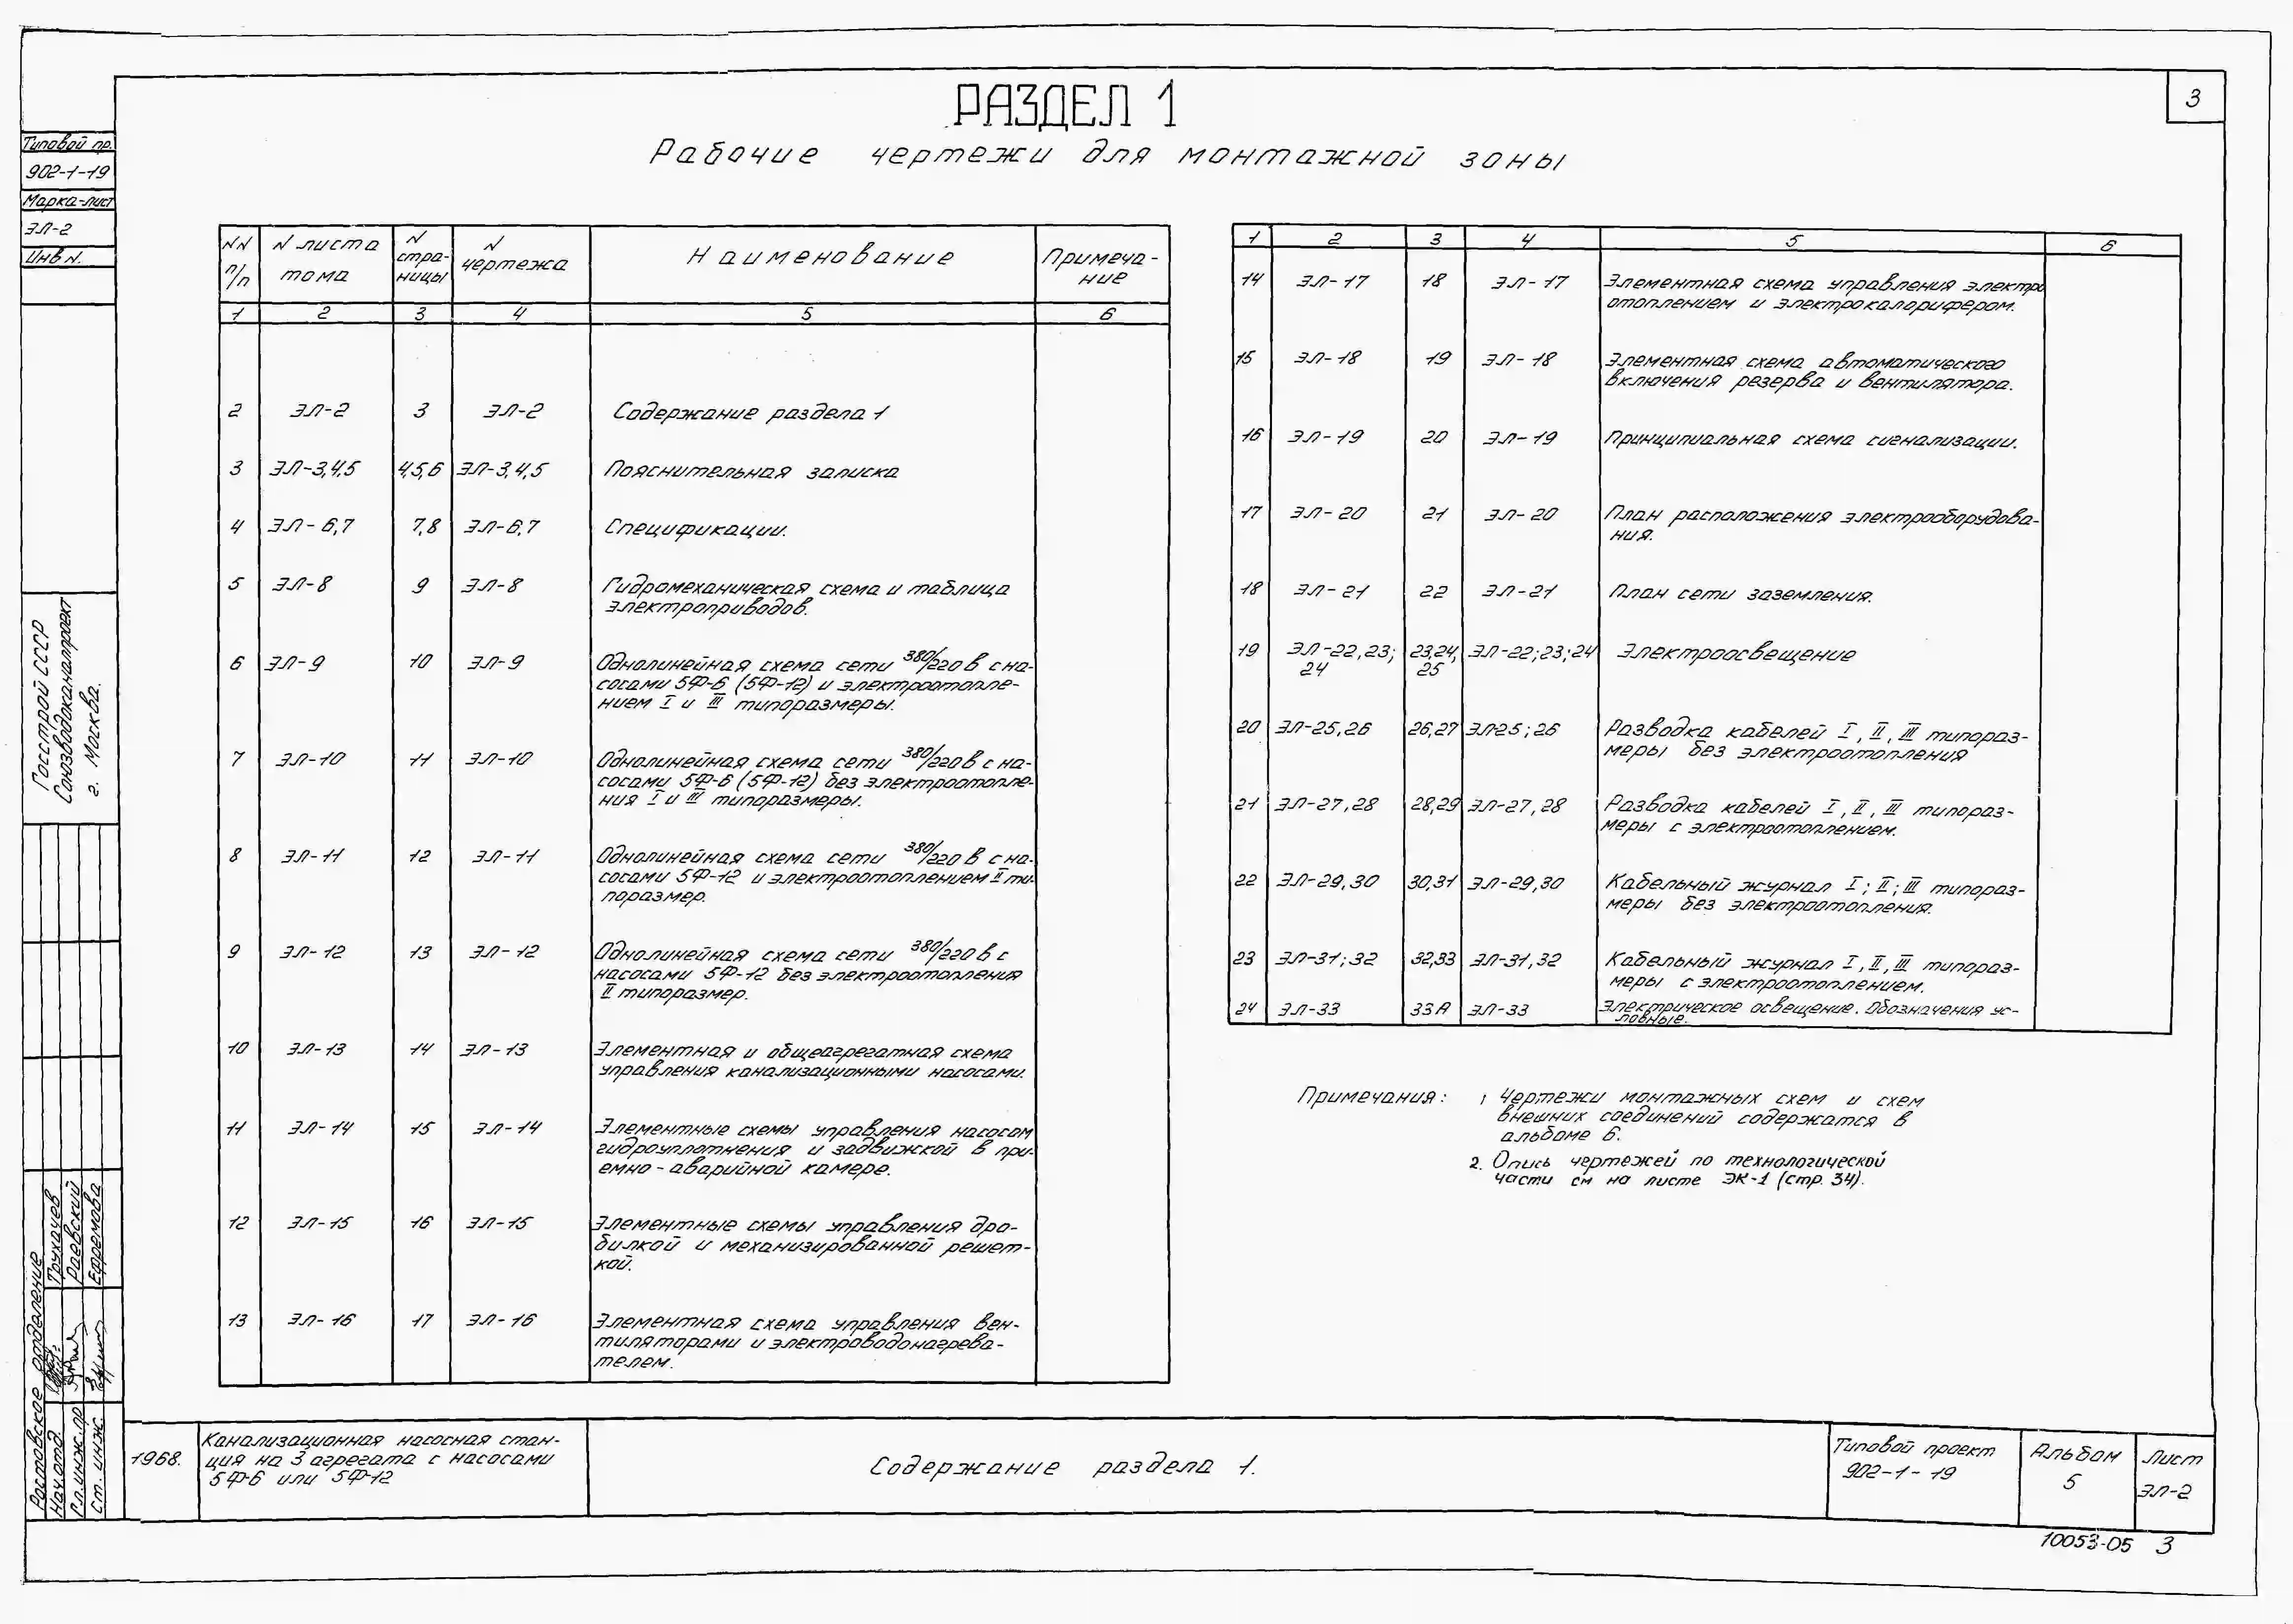 3
РАЗДЕЛ 1
Рабочие чертежи для монтажной зоны
Типовой пр.
902-1-19
Марка-лист
ЭЛ-2
Инв N.
Госстрой СССР
Союзводоканалпроект
г. Москва.
Ростовское отделение
Нач.отд. Трухачев
Гл.инж.пр Раевский
Ст. инж. Ефремова
NN п/п | N листа тома | N страницы | N чертежа | Наименование | Примеча-
ние
1 2 3 4 5 6
2 ЭЛ-2 3 ЭЛ-2 Содержание раздела 1
3 ЭЛ-3,4,5 4,5,6 ЭЛ-3,4,5 Пояснительная записка
4 ЭЛ-6,7 7,8 ЭЛ-6,7 Спецификации.
5 ЭЛ-8 9 ЭЛ-8 Гидромеханическая схема и таблица
электроприводов.
6 ЭЛ-9 10 ЭЛ-9 Однолинейная схема сети 380/220 в с на-
сосами 5Ф-6 (5Ф-12) и электроотопле-
нием I и III типоразмеры.
7 ЭЛ-10 11 ЭЛ-10 Однолинейная схема сети 380/220 в с на-
сосами 5Ф-6 (5Ф-12) без электроотопле-
ния I и III типоразмеры.
8 ЭЛ-11 12 ЭЛ-11 Однолинейная схема сети 380/220 в с на-
сосами 5Ф-12 и электроотоплением II ти-
поразмер.
9 ЭЛ-12 13 ЭЛ-12 Однолинейная схема сети 380/220 в с
насосами 5Ф-12 без электроотопления
II типоразмер.
10 ЭЛ-13 14 ЭЛ-13 Элементная и общеагрегатная схема
управления канализационными насосами.
11 ЭЛ-14 15 ЭЛ-14 Элементные схемы управления насосом
гидроуплотнения и задвижкой в при-
емно-аварийной камере.
12 ЭЛ-15 16 ЭЛ-15 Элементные схемы управления дро-
билкой и механизированной решет-
кой.
13 ЭЛ-16 17 ЭЛ-16 Элементная схема управления вен-
тиляторами и электроводонагрева-
телем.
1 2 3 4 5 6
14 ЭЛ-17 18 ЭЛ-17 Элементная схема управления электро
отоплением и электрокалорифером.
15 ЭЛ-18 19 ЭЛ-18 Элементная схема автоматического
включения резерва и вентилятора.
16 ЭЛ-19 20 ЭЛ-19 Принципиальная схема сигнализации.
17 ЭЛ-20 21 ЭЛ-20 План расположения электрооборудова-
ния.
18 ЭЛ-21 22 ЭЛ-21 План сети заземления.
19 ЭЛ-22,23; 23,24, ЭЛ-22;23;24 Электроосвещение
24 25
20 ЭЛ-25,26 26,27 ЭЛ25;26 Разводка кабелей I, II, III типораз-
меры без электроотопления
21 ЭЛ-27,28 28,29 ЭЛ-27,28 Разводка кабелей I, II, III типораз-
меры с электроотоплением.
22 ЭЛ-29,30 30,31 ЭЛ-29,30 Кабельный журнал I; II; III типораз-
меры без электроотопления.
23 ЭЛ-31;32 32,33 ЭЛ-31,32 Кабельный журнал I, II, III типораз-
меры с электроотоплением.
24 ЭЛ-33 33А ЭЛ-33 Электрическое освещение. Обозначения ус-
ловные.
Примечания: 1 Чертежи монтажных схем и схем
внешних соединений содержатся в
альбоме 6.
2. Опись чертежей по технологической
части см на листе ЭК-1 (стр. 34).
1968.
Канализационная насосная стан-
ция на 3 агрегата с насосами
5Ф-6 или 5Ф-12
Содержание раздела 1.
Типовой проект
902-1-19
Альбом
5
Лист
ЭЛ-2
10053-05 3